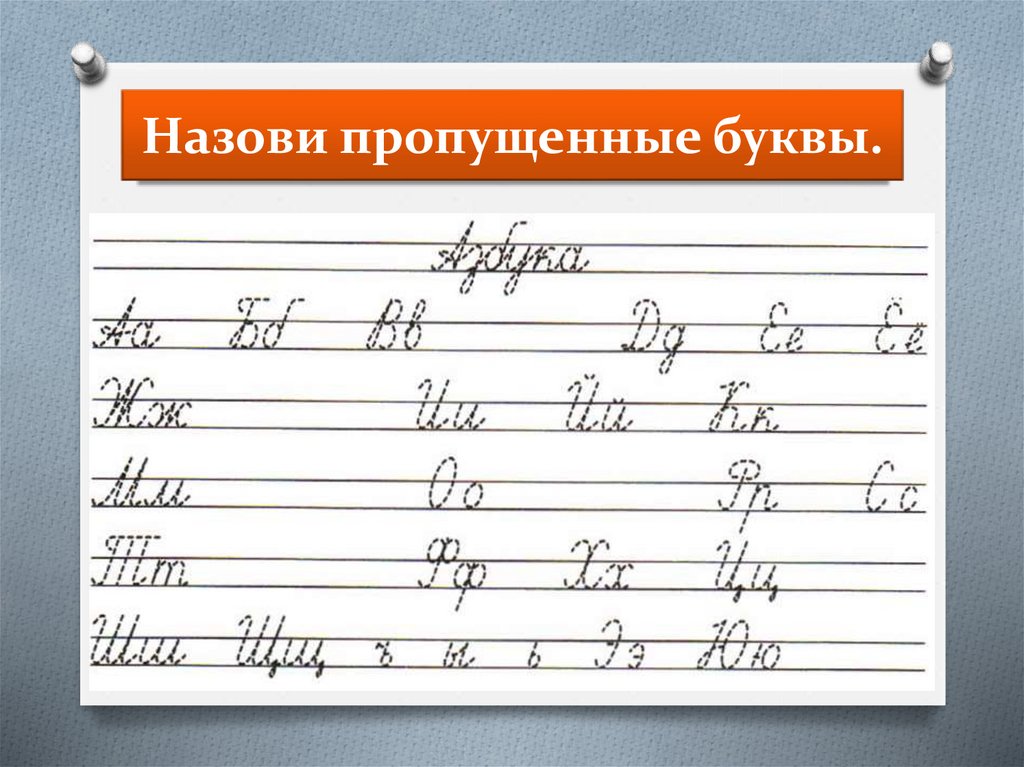 Назови пропущенные буквы.
Азбука
Аа Бб Вв Дд Ее Ёё
Жж Ии Йй Кк
Мм Оо Рр Сс
Тт Фф Хх Цц
Шш Щщ ъ ы ь Ээ Юю